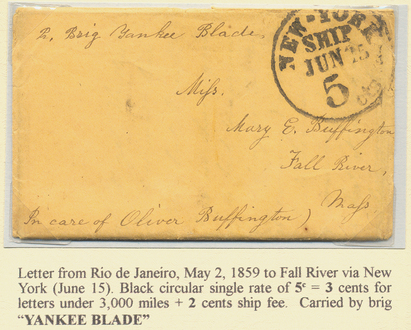 P. Brig Yankee Blade
NEW-YORK
SHIP
JUN 15
5
Miss.
Mary E. Buffington
Fall River,
Mass
In care of Oliver Buffington)
Letter from Rio de Janeiro, May 2, 1859 to Fall River via New
York (June 15). Black circular single rate of 5ᶜ = 3 cents for
letters under 3,000 miles + 2 cents ship fee. Carried by brig
“YANKEE BLADE”